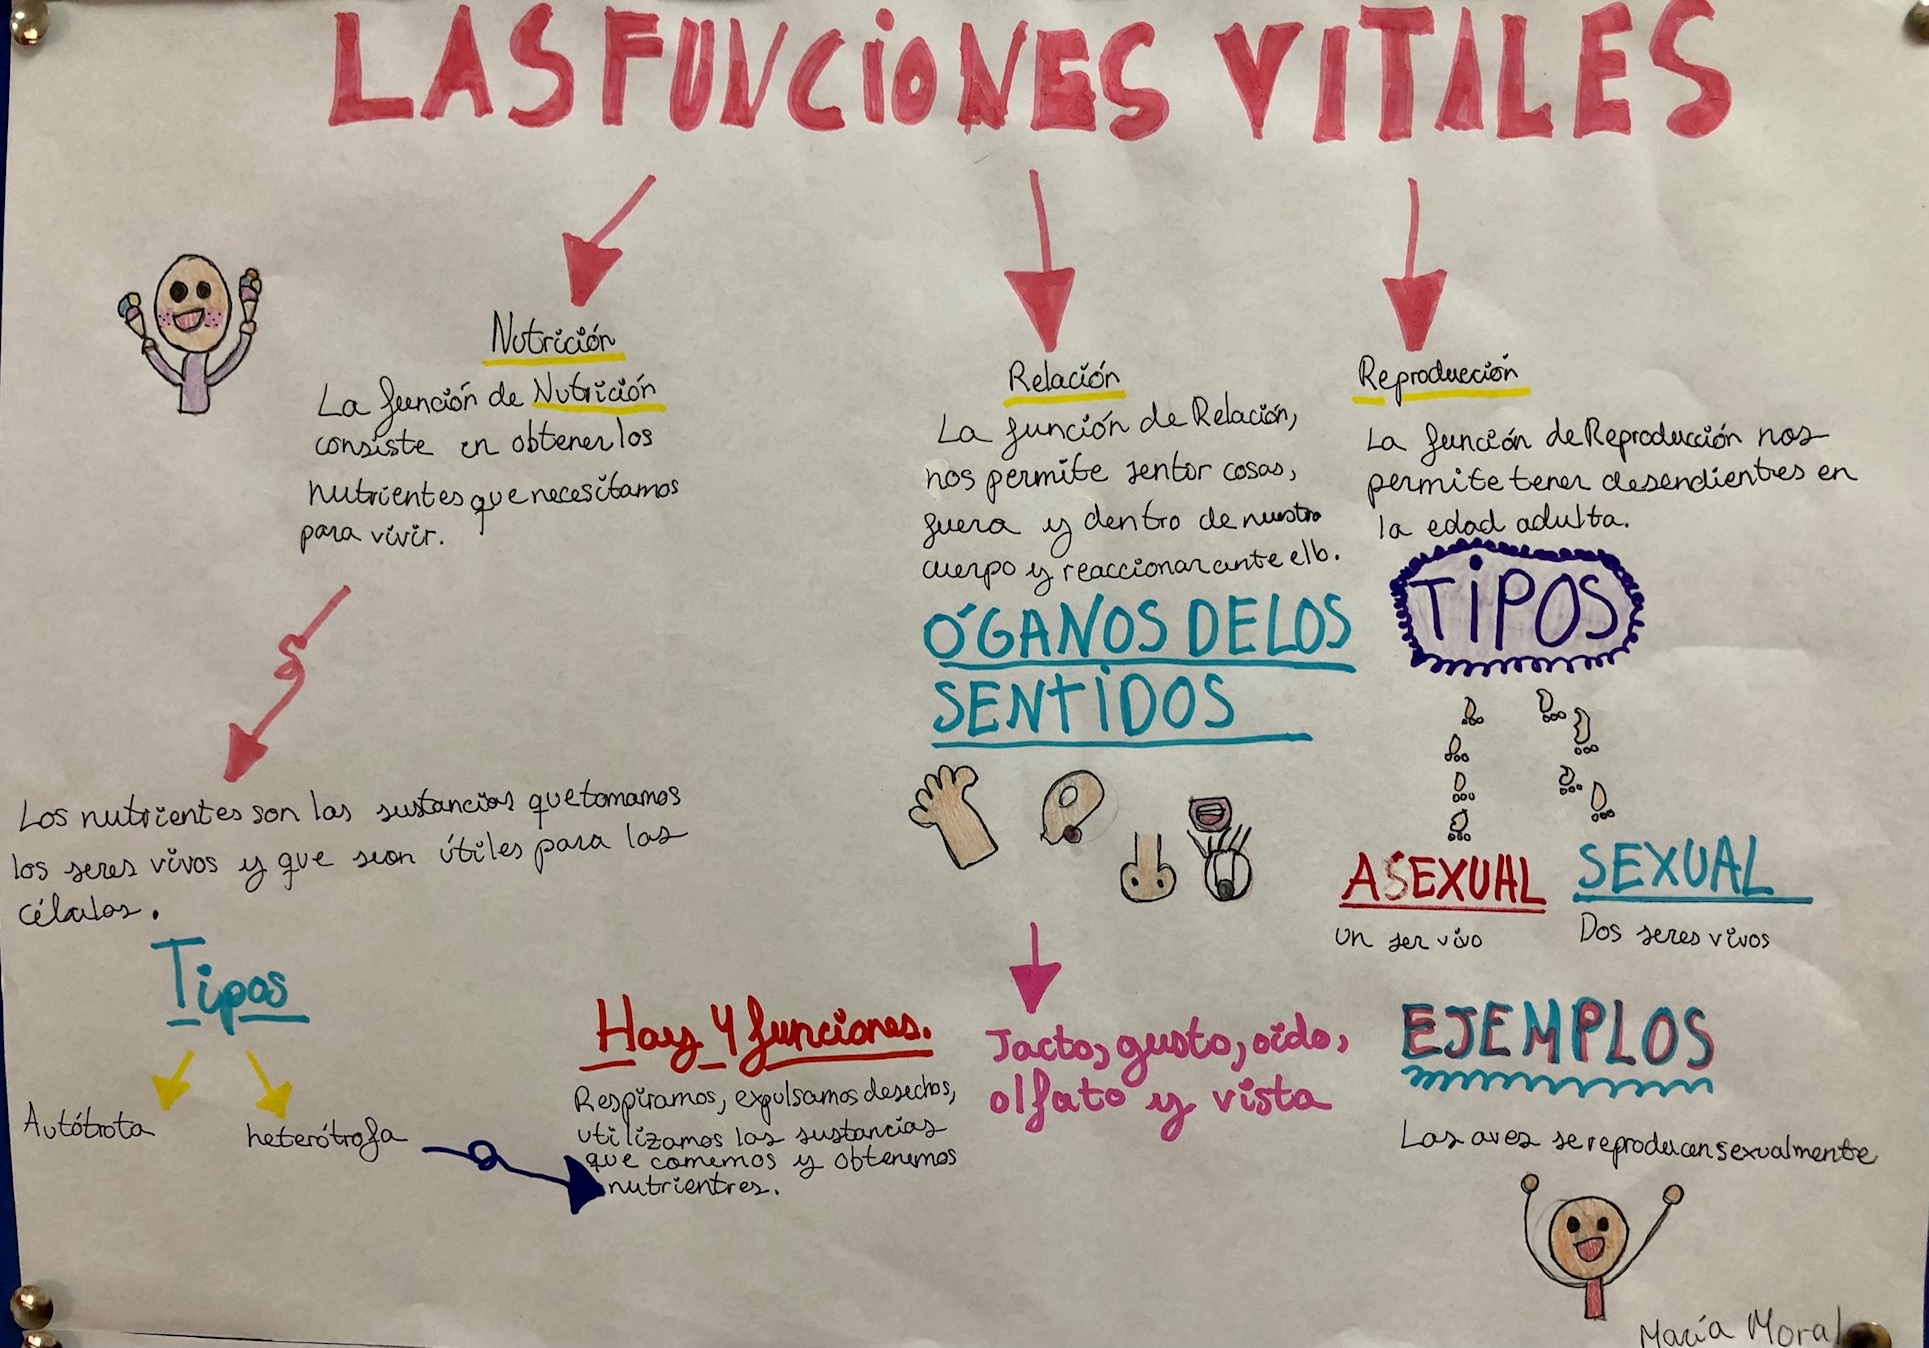 LAS FUNCIONES VITALES
Nutrición
La función de Nutrición
consiste en obtener los
nutrientes que necesitamos
para vivir.
Los nutrientes son las sustancias que tomamos
los seres vivos y que sean útiles para las
células.
Tipos
Autótrota
heterótrofa
Hay 4 funciones.
Respiramos, expulsamos desechos,
utilizamos las sustancias
que comemos y obtenemos
nutrientres.
Relación
La función de Relación,
nos permite sentir cosas,
fuera y dentro de nuestro
cuerpo y reaccionar ante ello.
ÓGANOS DE LOS
SENTIDOS
Tacto, gusto, oido,
olfato y vista
Reproducción
La función de Reproducción nos
permite tener desendientes en
la edad adulta.
TIPOS
ASEXUAL
Un ser vivo
SEXUAL
Dos seres vivos
EJEMPLOS
Las aves se reproducen sexualmente
María Moral